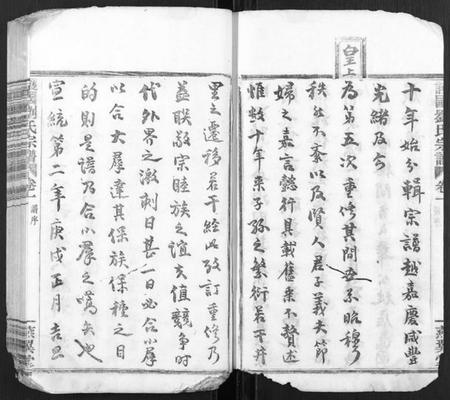 皇上
十年始分輯宗譜越嘉慶咸豐
光緒及今
為第五次重修其間世系昭穆
秩然不紊以及賢人君子義夫節
婦之嘉言懿行具載舊乘不贅述
惟數十年來子孫之繁衍若干丼
里之遷移若干經此攷訂重修乃
益联敬宗睦族之誼夫值競爭時
代外界之激刺日甚一日必合小羣
以合大羣達其保族保種之目
的則是譜乃合小羣之嚆矢也
宣統第二年庚戌正月吉旦
劉氏宗譜 卷一 譜序